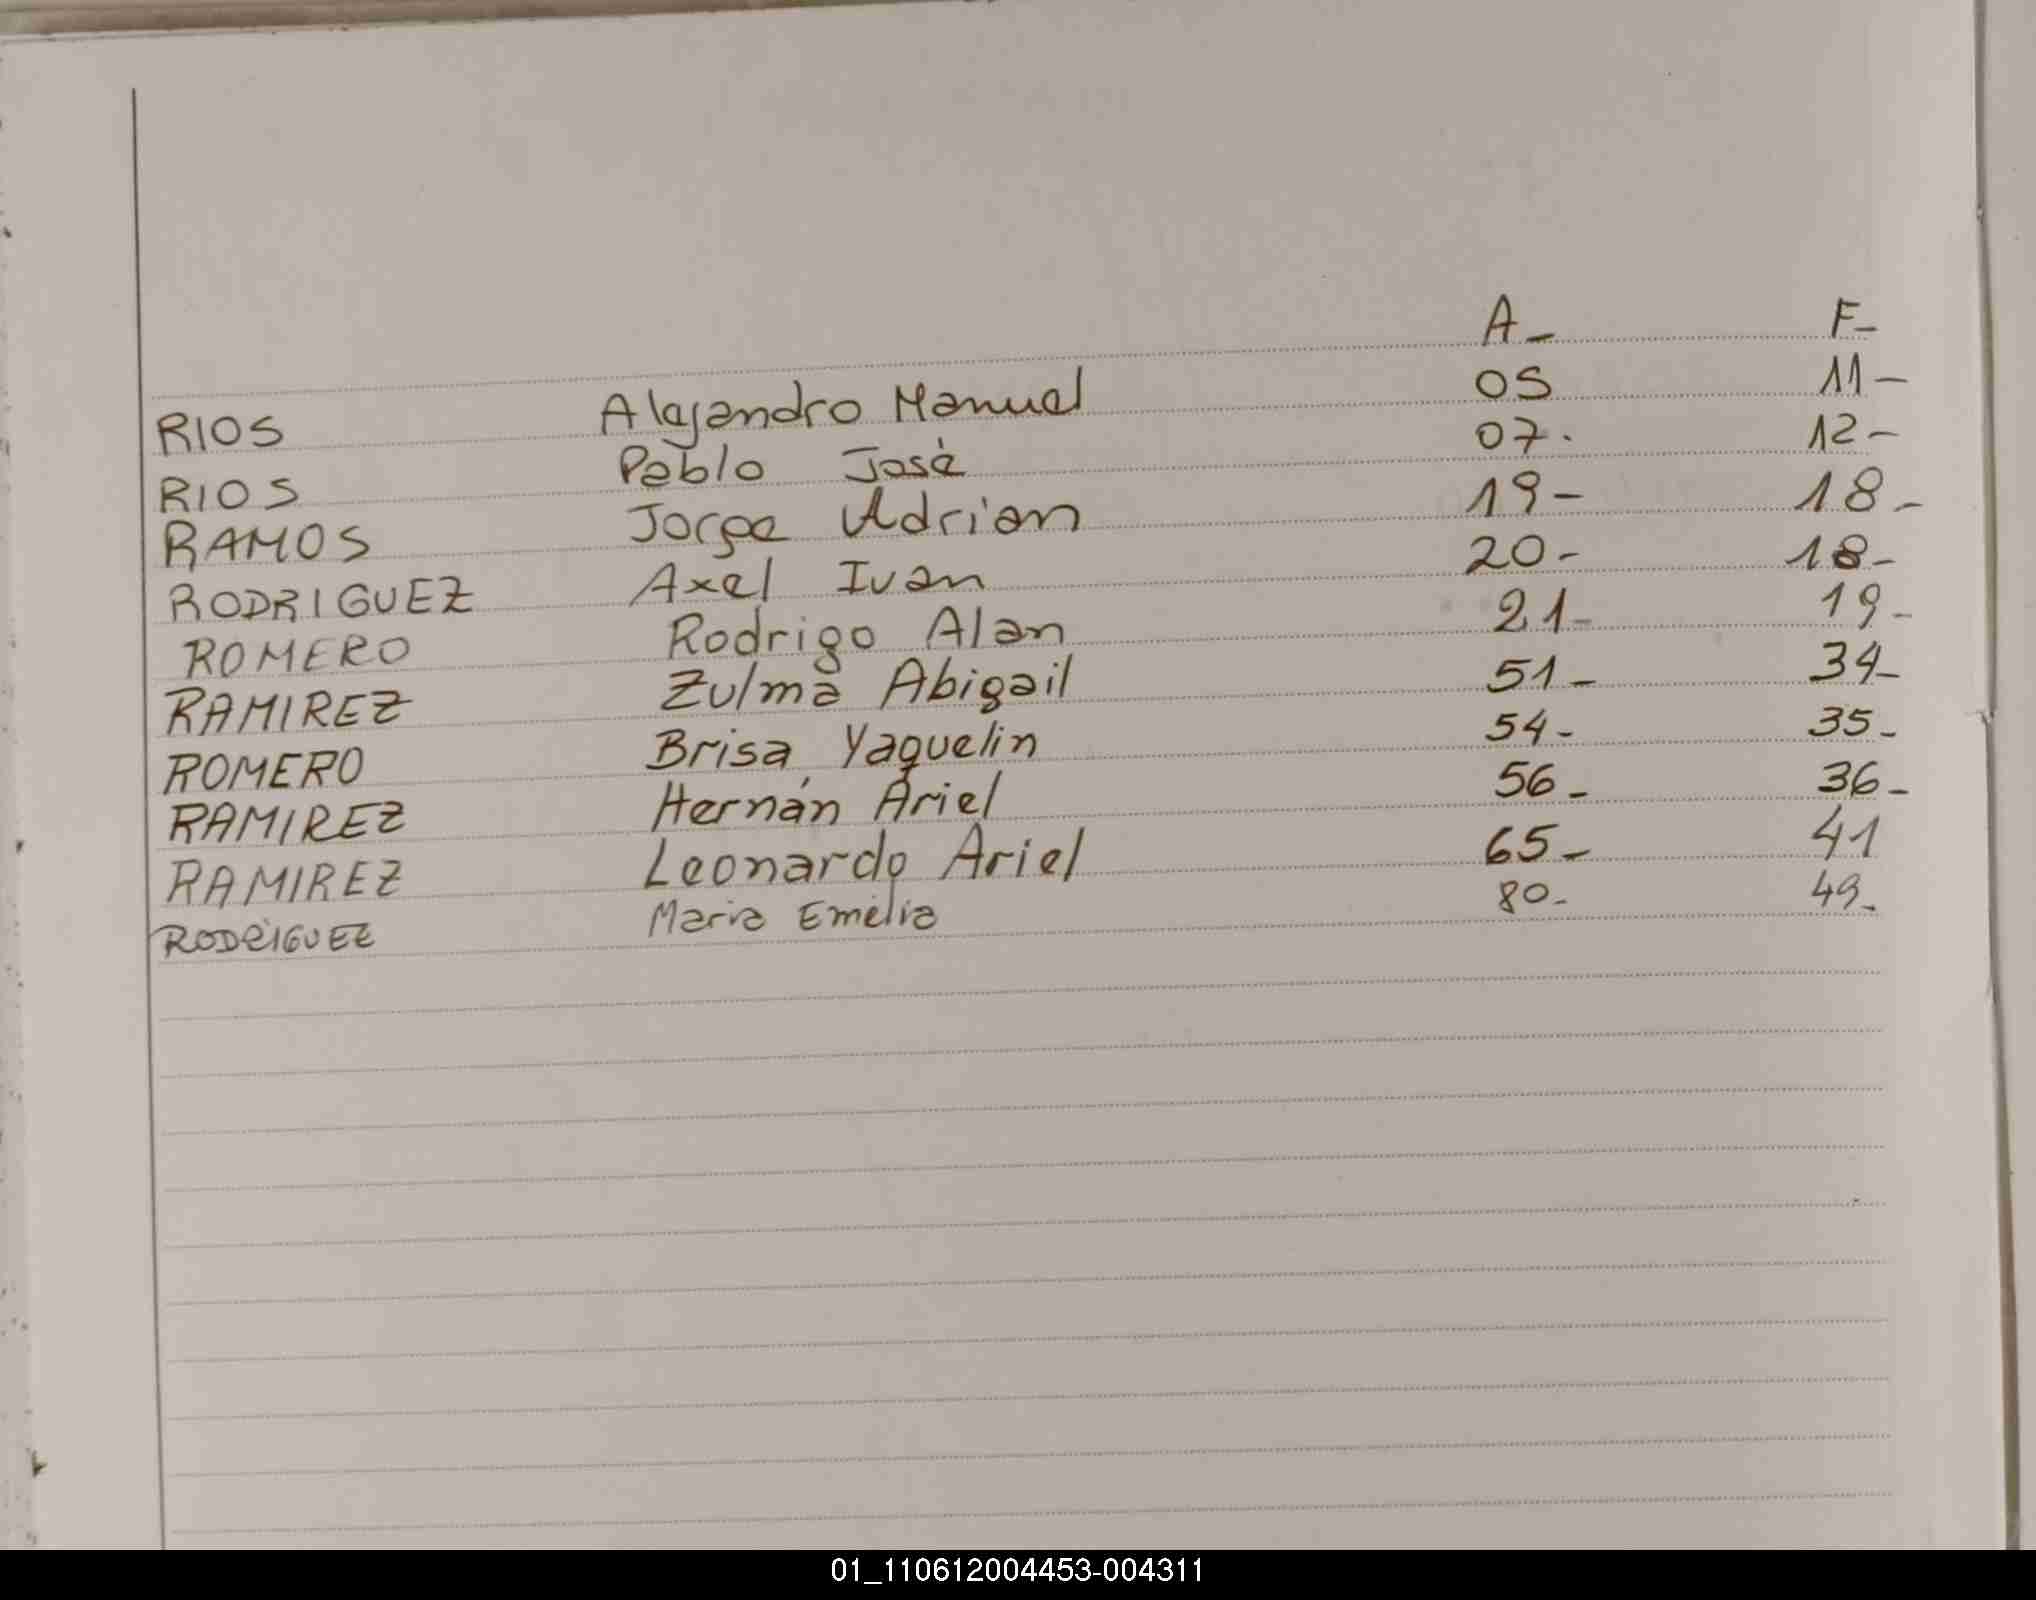 A- F-
RIOS Alejandro Manuel 05 11-
RIOS Pablo José 07. 12-
RAMOS Jorge Adrian 19- 18-
RODRIGUEZ Axel Ivan 20- 18-
ROMERO Rodrigo Alan 21- 19-
RAMIREZ Zulma Abigail 51- 34-
ROMERO Brisa Yaquelin 54- 35-
RAMIREZ Hernán Ariel 56- 36-
RAMIREZ Leonardo Ariel 65- 41
RODRIGUEZ Maria Emelia 80- 49-
01_110612004453-004311